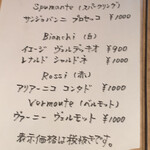 Spumante (スパークリング)
サンジョバンニ プロセッコ ¥1000
Bianchi (白)
イエージ ヴェルディッキオ ¥900
レアルド シャルドネ ¥1000
Rossi (赤)
アリアーニコ コンタド ¥1000
Vermonte (ベルモット)
ヴァーニー ヴェルモット ¥1000
表示価格は税抜です。